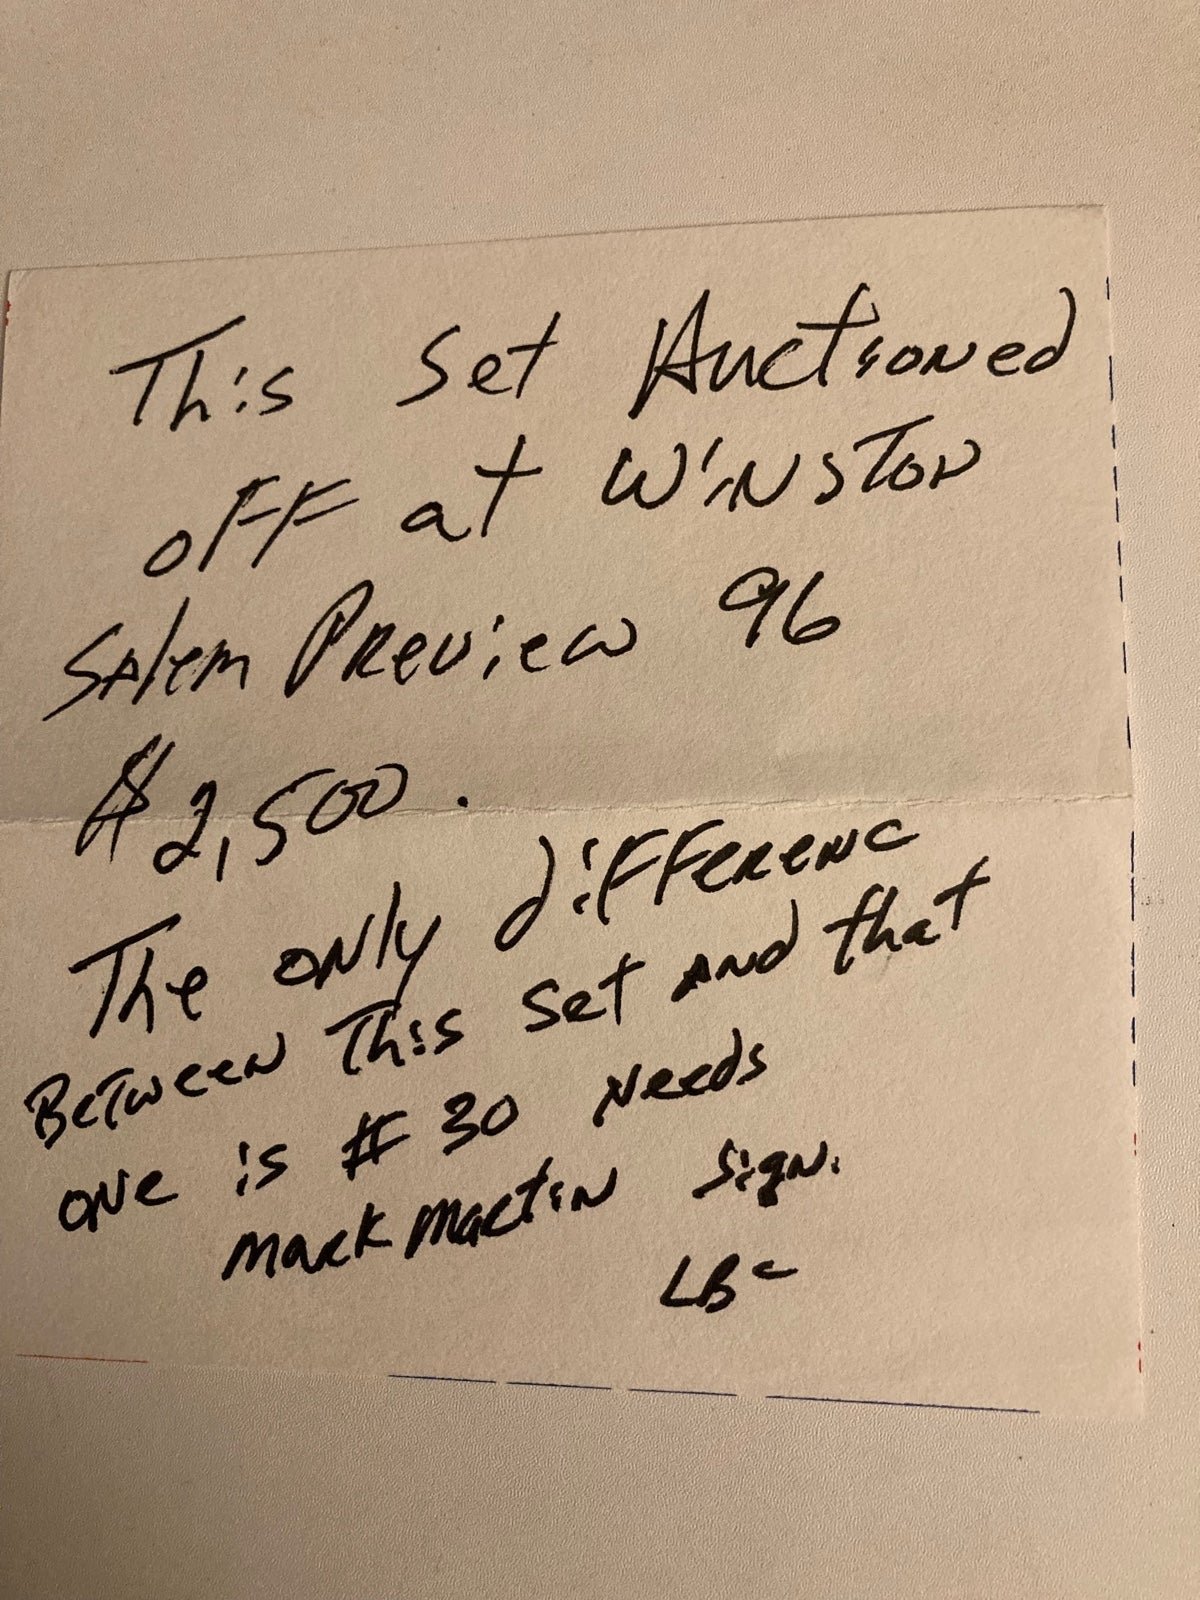 This Set Auctioned
off at Winston
Salem Preview 96
$2,500.
The only differenc
Between This Set and that
one is # 30 Needs
Mark Martin Sign.
LB